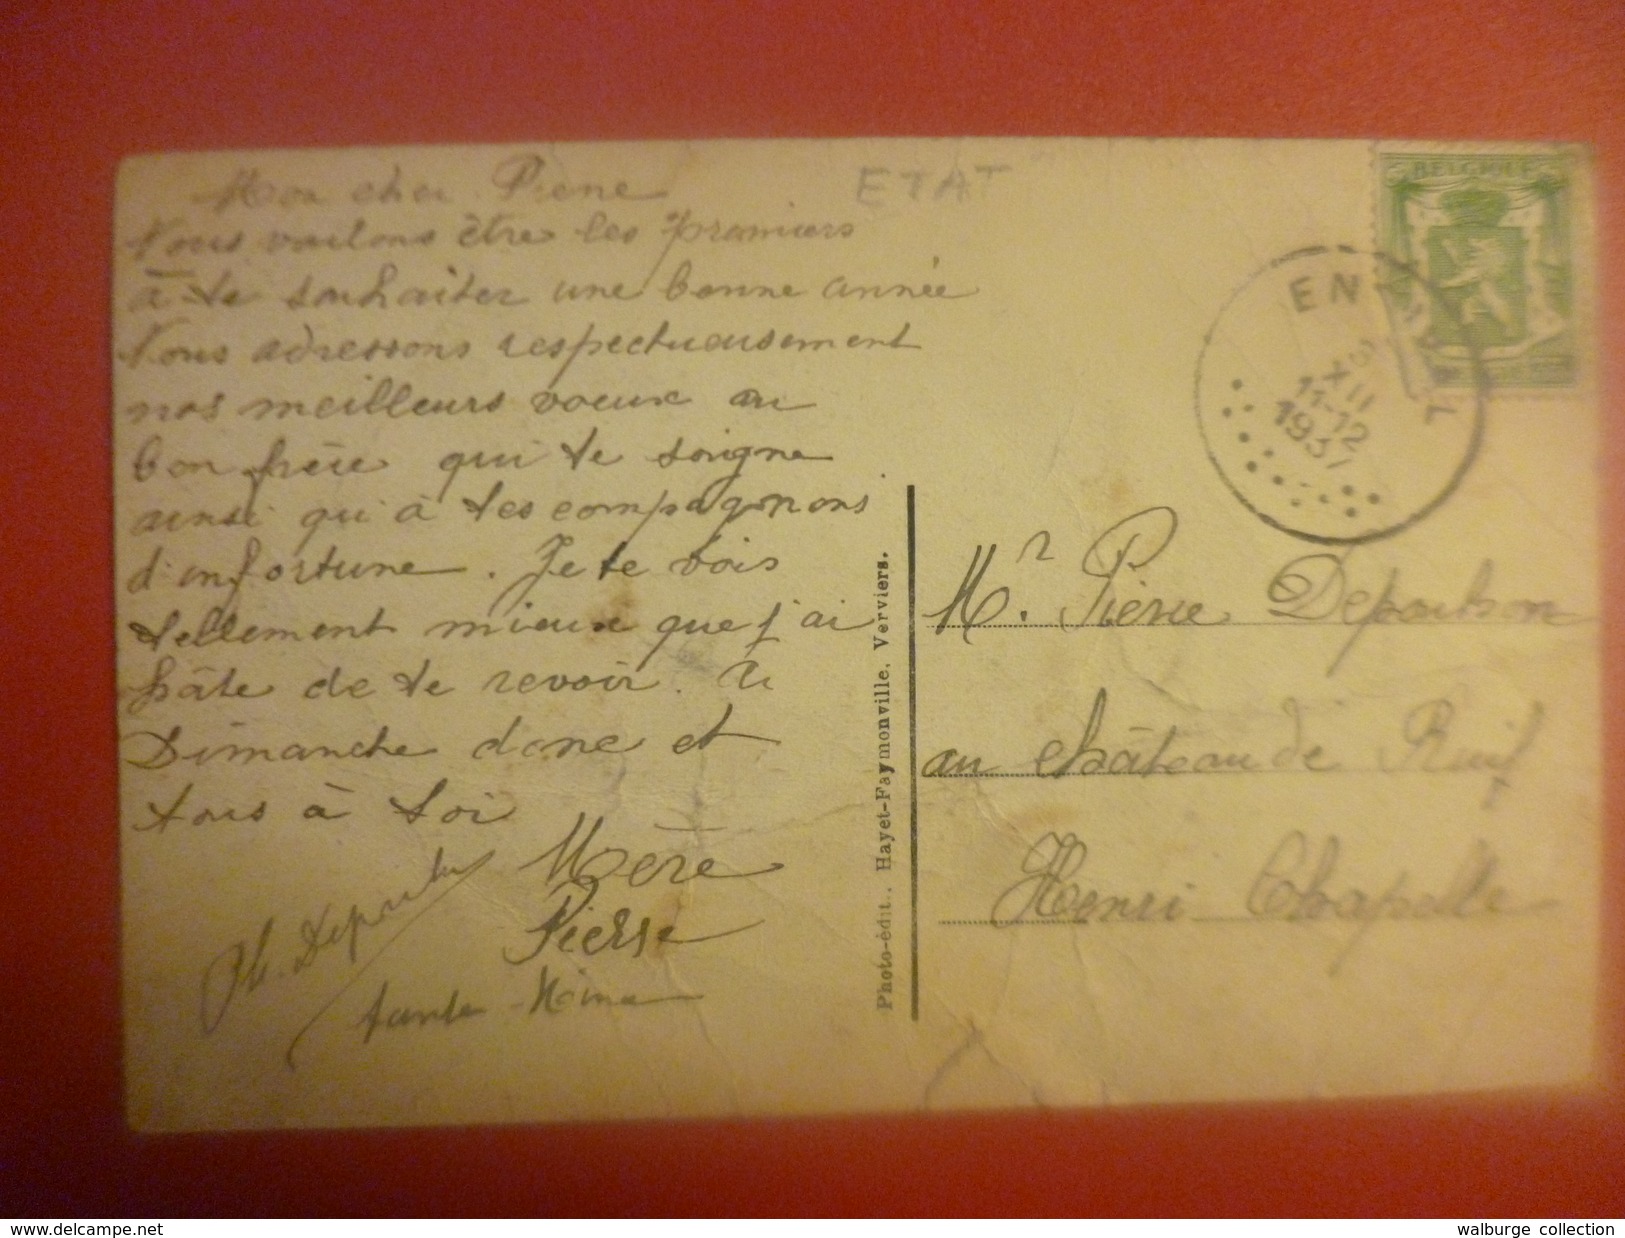 Mon cher Pierre
Nous voulons être les premiers
à te souhaiter une bonne année
Nous adressons respectueusement
nos meilleurs voeux au
bon frère qui te soigne
ainsi qu'à tes compagnons
d'infortune. Je te vois
tellement mieux que j'ai
hâte de te revoir. A
Dimanche donc et
tous à toi
Mère
Pierre
tante
ETAT
BELGIQUE
EN
XII
11-12
1937
Photo-édit., Hayet-Faymonville, Verviers.
Mr. Pierre
au château de Ruif
Henri Chapelle
http://www.delcampe.net
walburge collection